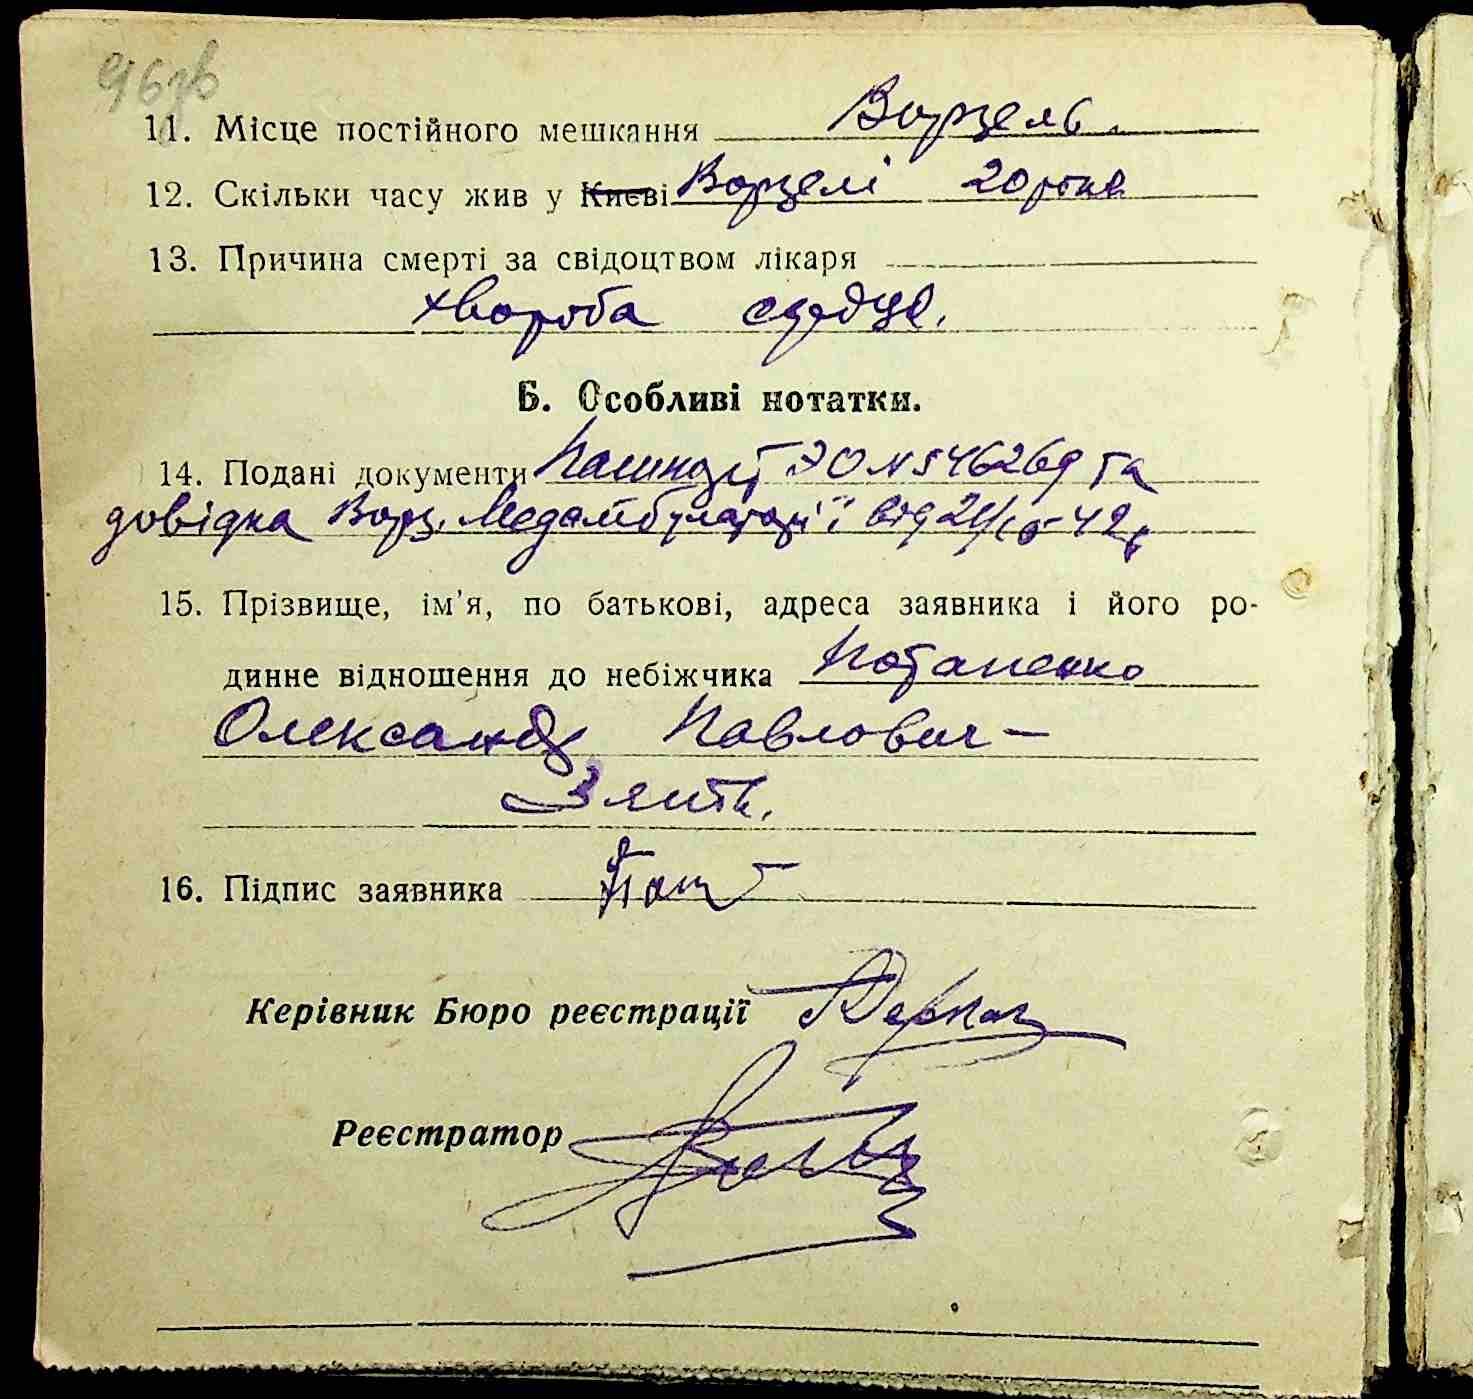 96зв
11. Місце постійного мешкання Ворзель.
12. Скільки часу жив у Києві Ворзелі 20 років
13. Причина смерті за свідоцтвом лікаря
хвороба серця.
Б. Особливі нотатки.
14. Подані документи Пашпорт ЭО № 546269 та
довідка Ворз. Медамбулаторії від 21/10-42 р
15. Прізвище, ім'я, по батькові, адреса заявника і його ро-
динне відношення до небіжчика Потапенко
Олександр Павлович —
Зять.
16. Підпис заявника Пот
Керівник Бюро реєстрації
Реєстратор